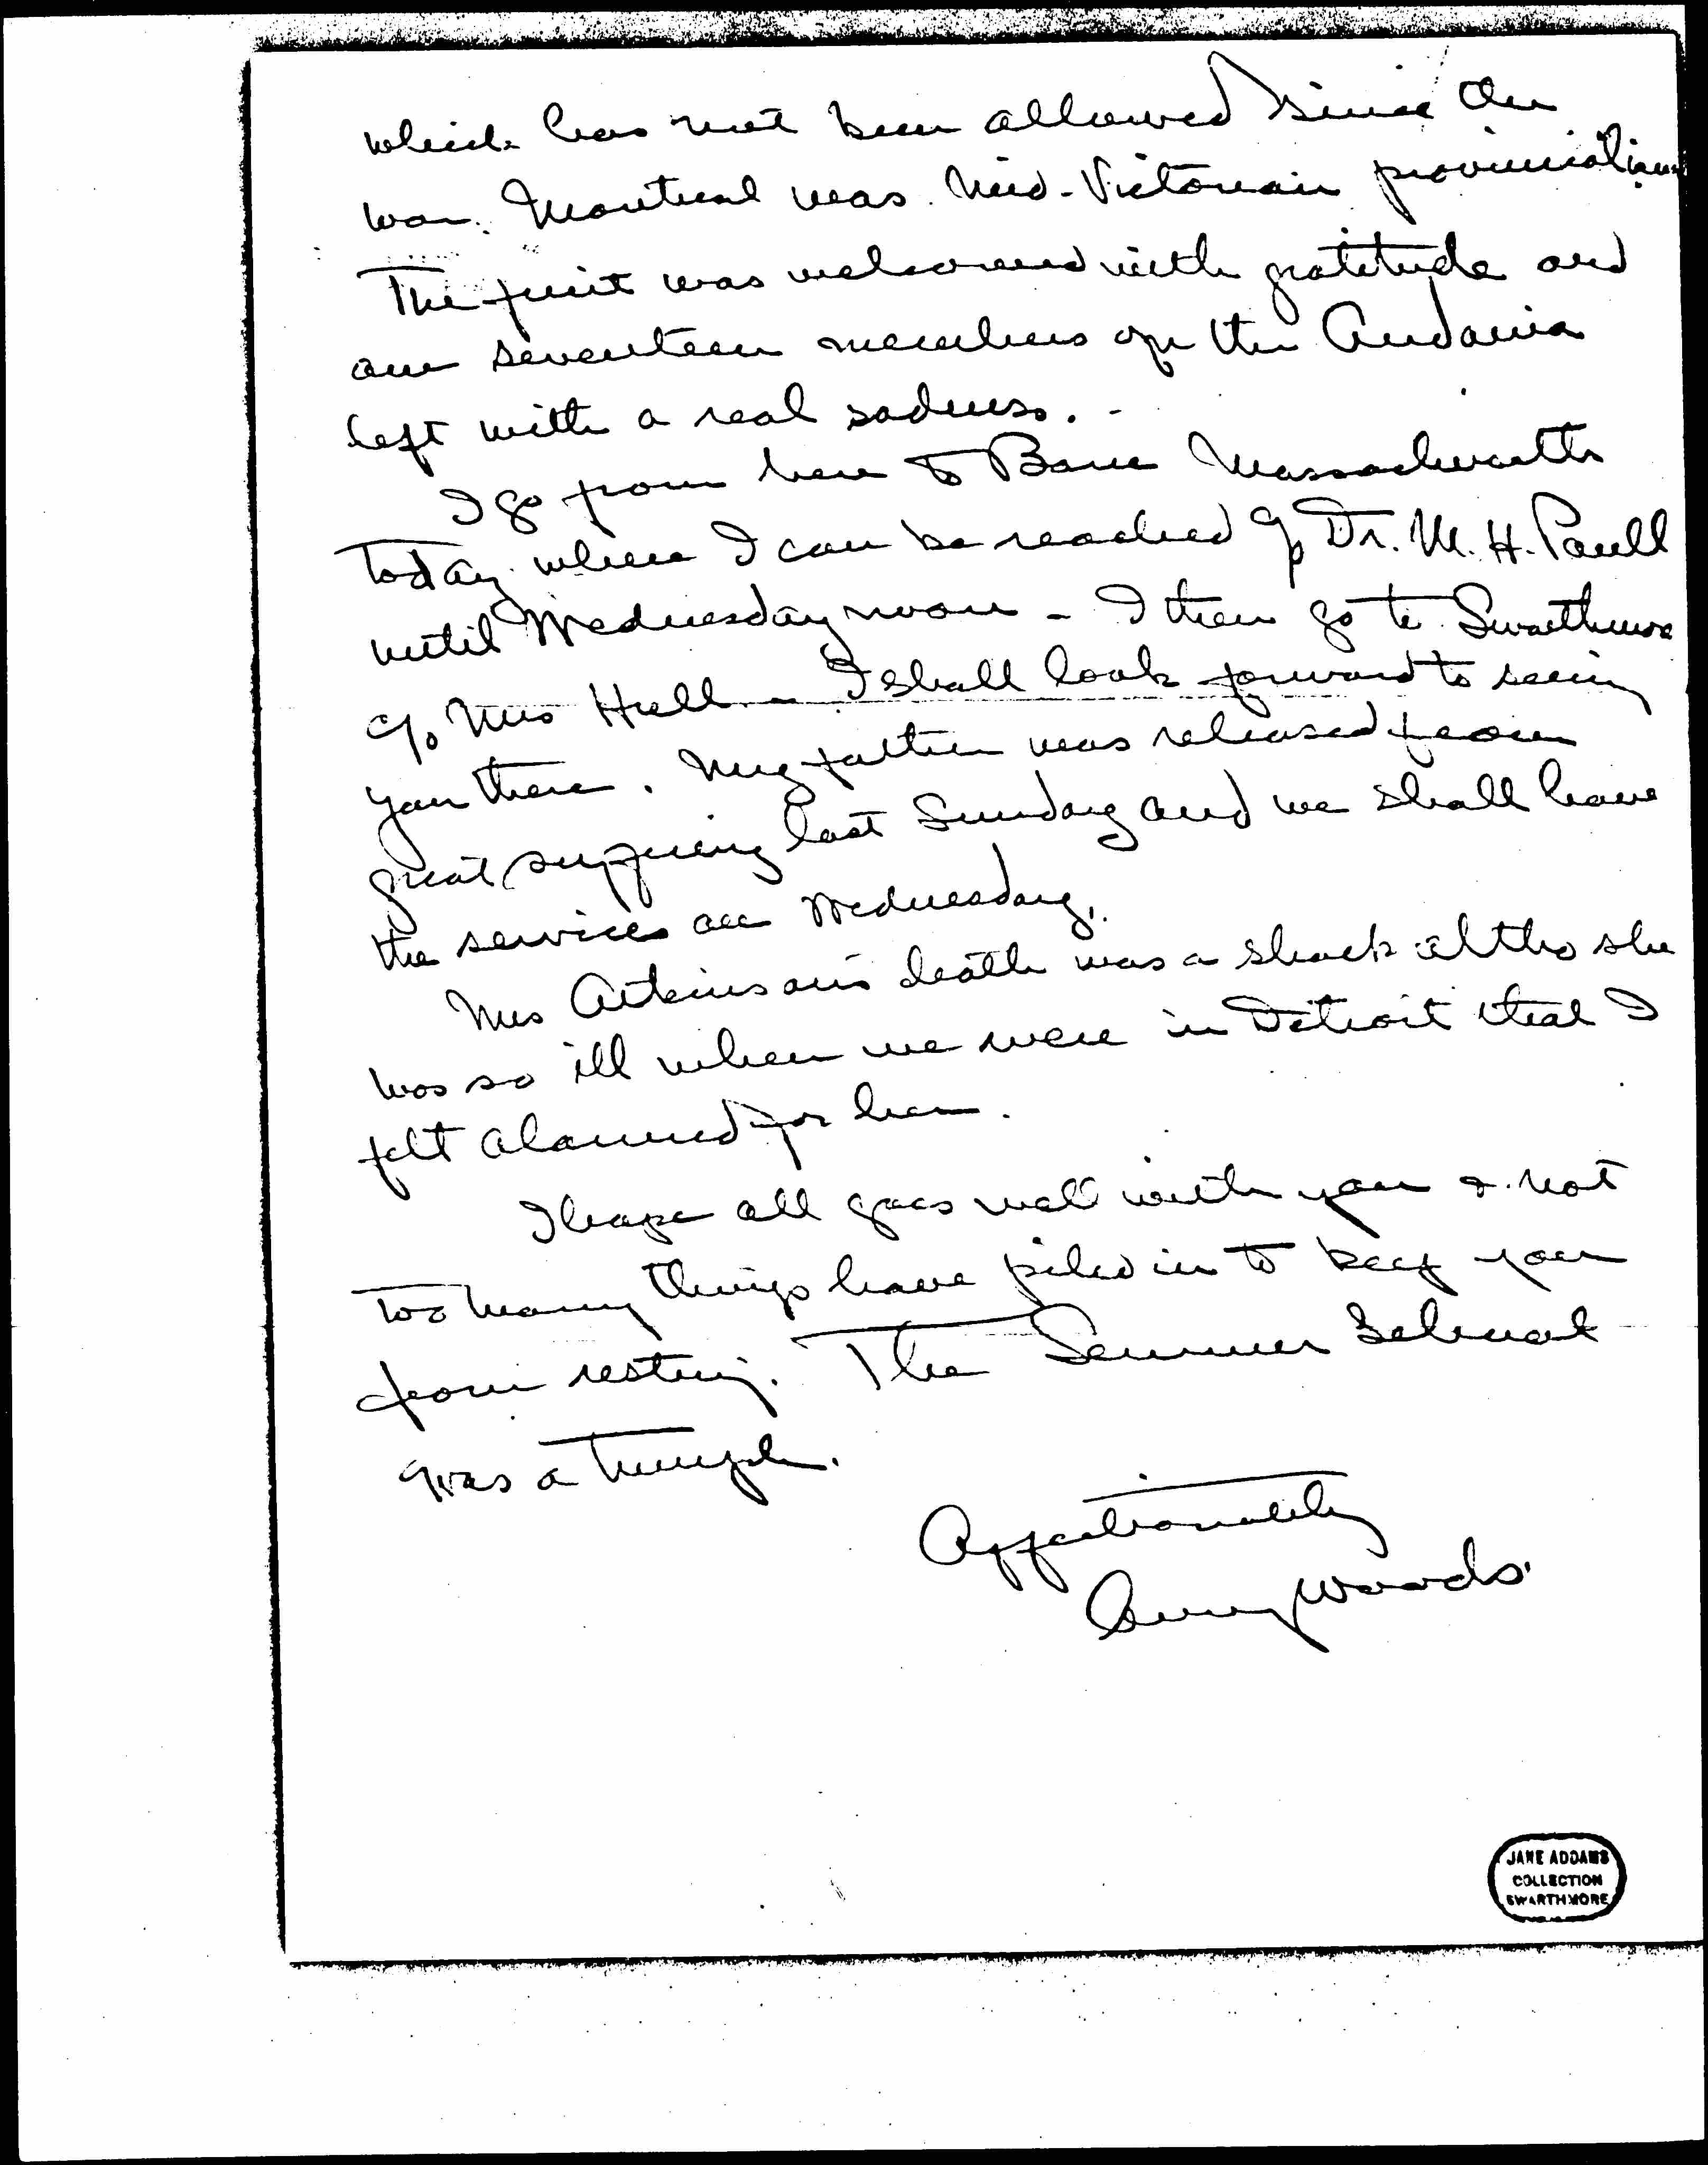 which has not been allowed since the
war. Montreal was Mid-Victorian provincialism
The fruit was welcomed with gratitude and
our seventeen members of the Andania
left with a real sadness. -
I go from here to Barre Massachusetts
today where I can be reached c/o Dr. M. H. Paull
until Wednesday noon - I then go to Swarthmore
c/o Mrs Hull - I shall look forward to seeing
you there. My father was released from
great suffering last Sunday and we shall have
the services on Wednesday.
Mrs Atkinson's death was a shock altho she
was so ill when we were in Detroit that I
felt alarmed for her.
I hope all goes well with you & not
too many things have piled in to keep you
from resting. The Summer School
was a triumph.
Affectionately
Amy Woods.
JANE ADDAMS
COLLECTION
SWARTHMORE